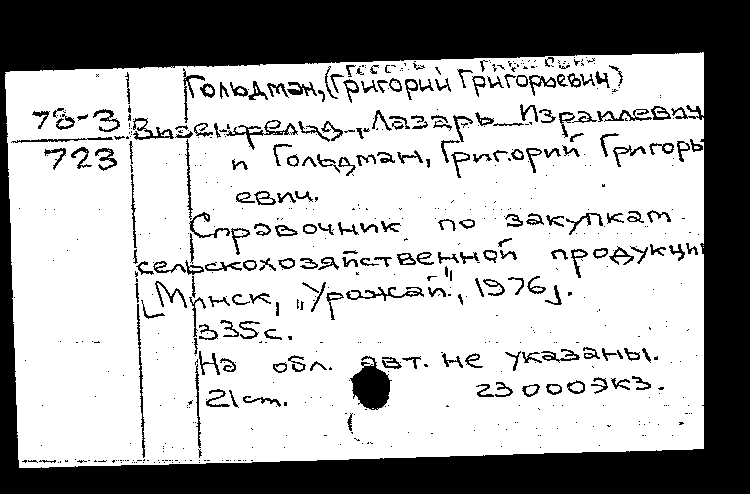 Гольдман, (Григорий Григорьевич)
78-3 Визенфельд, Лазарь Израилевич
723 и Гольдман, Григорий Григорь
евич.
Справочник по закупкам
сельскохозяйственной продукции
[Минск, „Урожай", 1976].
335с.
На обл. авт. не указаны.
21 cm. 23 000экз.